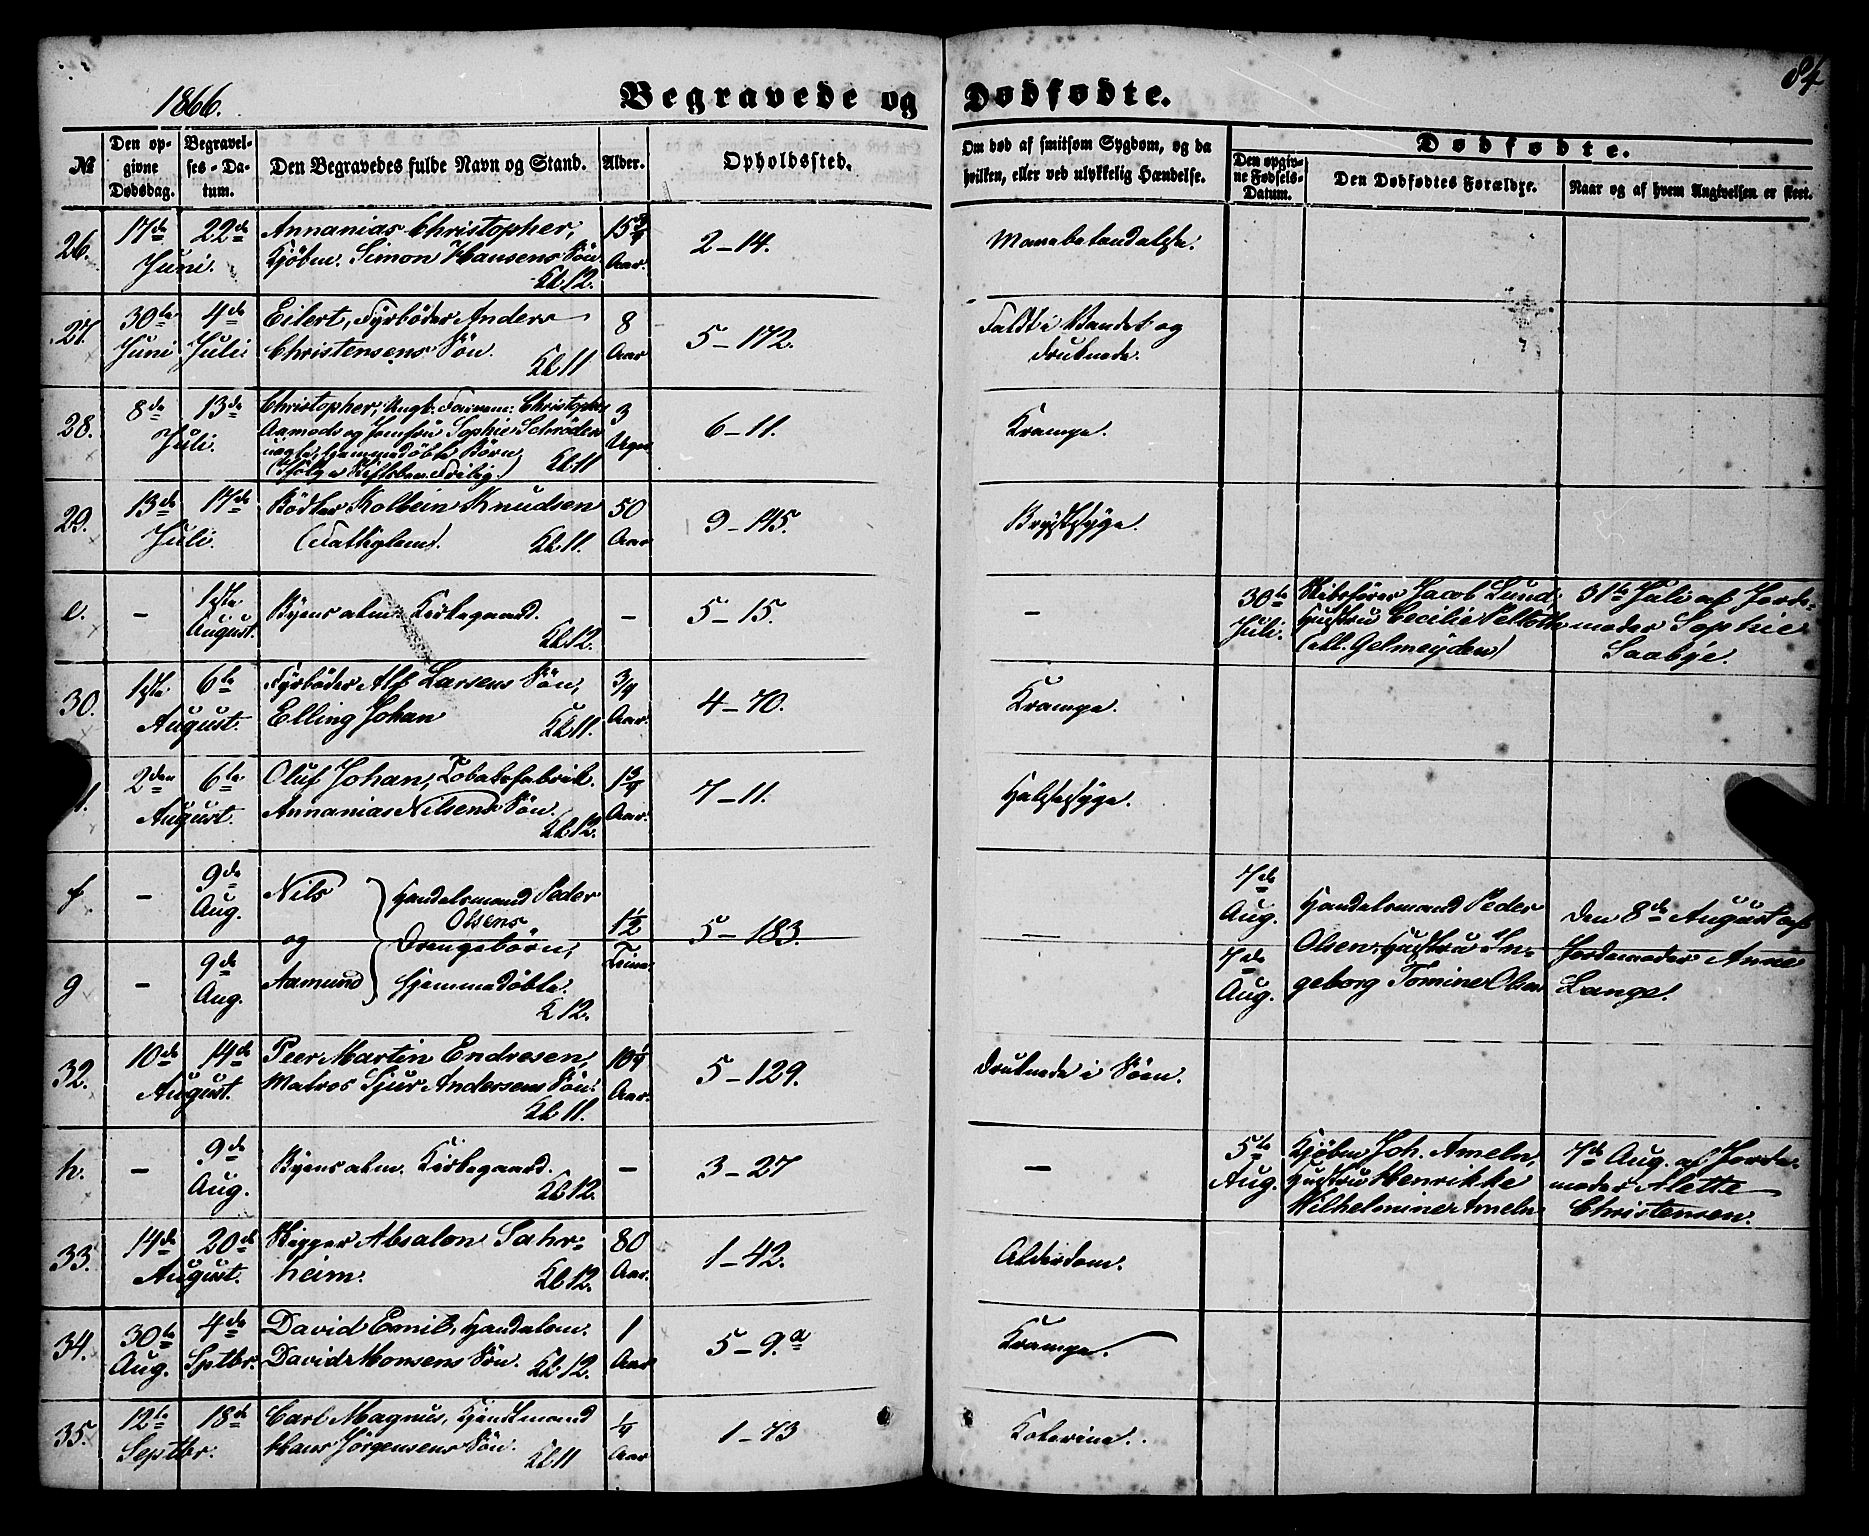 1866.
Begravede og Dødfødte.
84
№
Den opgivne Dødsdag.
Begravelses-Datum.
Den Begravedes fulde Navn og Stand.
Alder.
Opholdssted.
Om død af smitsom Sygdom, og da hvilken, eller ved ulykkelig Hændelse.
Dødfødte.
Den opgivne Fødsels-Datum.
Den Dødfødtes Forældre.
Naar og af hvem Angivelsen er skeet.
26. 17de 22de Annanias Christopher, 15 3/4 2-14. Mavebetændelse.
Juni. Kjøbm. Simon Hansens Søn Aar.
Kl. 12.
27. 30te 4de Eilert, Fyrbøder Anders 8 5-172. Faldt i Vandet og
Juni Juli Christensens Søn. Aar druknede.
Kl. 11
28. 8de 13de Christopher, Ungk. Christopher 3 6-11. Krampe.
Juli. Aamodt og Jomfru Sophie Schrøder Uger
uægte, hjemmedøbte Børn
Kl. 11
29. 13de 17de Bødker Kolbein Knudsen 50 9-145. Brystsyge.
Juli. (Fattiglem). Kl. 11. Aar
e. - 1ste Byens alm. Kirkegaard. - 5-15. - 30te Skibsfører Jacob Lund, 31te Juli af Jorde-
August. Kl. 12. Juli. Hustru Cecilie Peltoth moder Sophie
(ell. Gelmeyden) Saabye.
30. 1ste 6te Fyrbøder Alf Larsens Søn, 3/4 4-70. Krampe.
August. Elling Johan Kl. 11. Aar.
2den 6te Oluf Johan, Tobaksfabrik. 1 3/4 7-11. Halssyge.
August. Annanias Nilsens Søn. Aar.
Kl. 12.
f - 9de Nils Handelsmand Peder 7de Handelsmand Peder Den 8de August af
Aug. og Olsens 1 1/2 5-183. - Aug. Olsen, Hustru In- Jordemoder Anne
g - 9de Aamund Drengebørn, Time 7de geborg Tomine Olsen Lange.
Aug. hjemmedøbte. Aug.
Kl. 12.
32. 10de 14de Peer Martin Endresen, 10 1/4 5-129. Druknede i Søen.
August. Matros Sjur Andersens Søn. Aar.
Kl. 11.
h. - 9de Byens alm. Kirkegaard. - 3-27 - 5te Kjøbm. Joh. Ameln, 7de Aug. af Jorde-
Aug. Kl. 12. Aug. Hustru Henrikke moder Alette
Wilhelmine Ameln. Christensen.
33. 14de 20de Skipper Absalon Sahr- 80 1-42. Alderdom.
August. heim. Kl. 12. Aar.
34. 30te 4de David Emil, Handelsm. 1 5-9.a Krampe.
Aug. Sptbr. David Monsens Søn. Kl. 12. Aar
35. 12te 18de Carl Magnus, 1/4 1-73 Kolerine.
Septbr. Hans Jørgensens Søn. Kl. 11 Aar